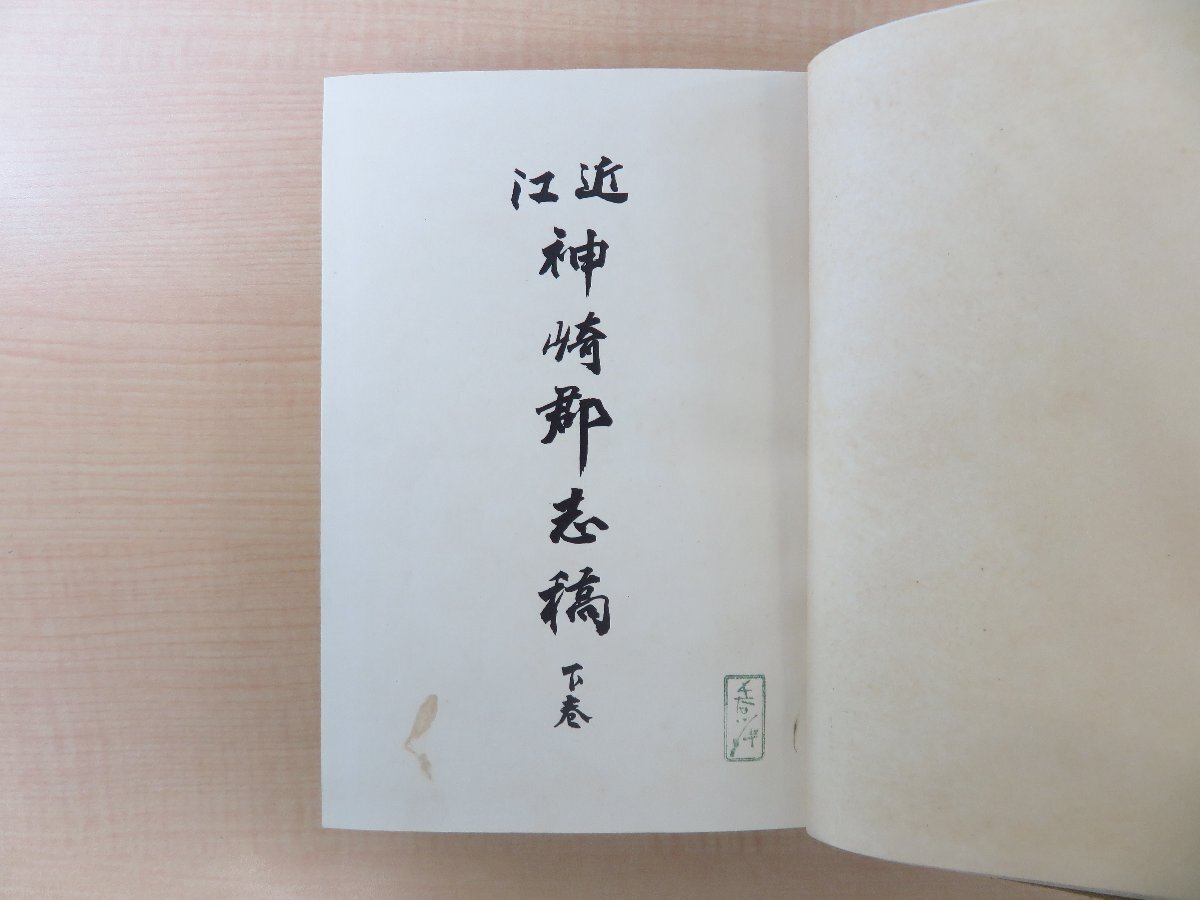 近江
神崎郡志稿
下巻